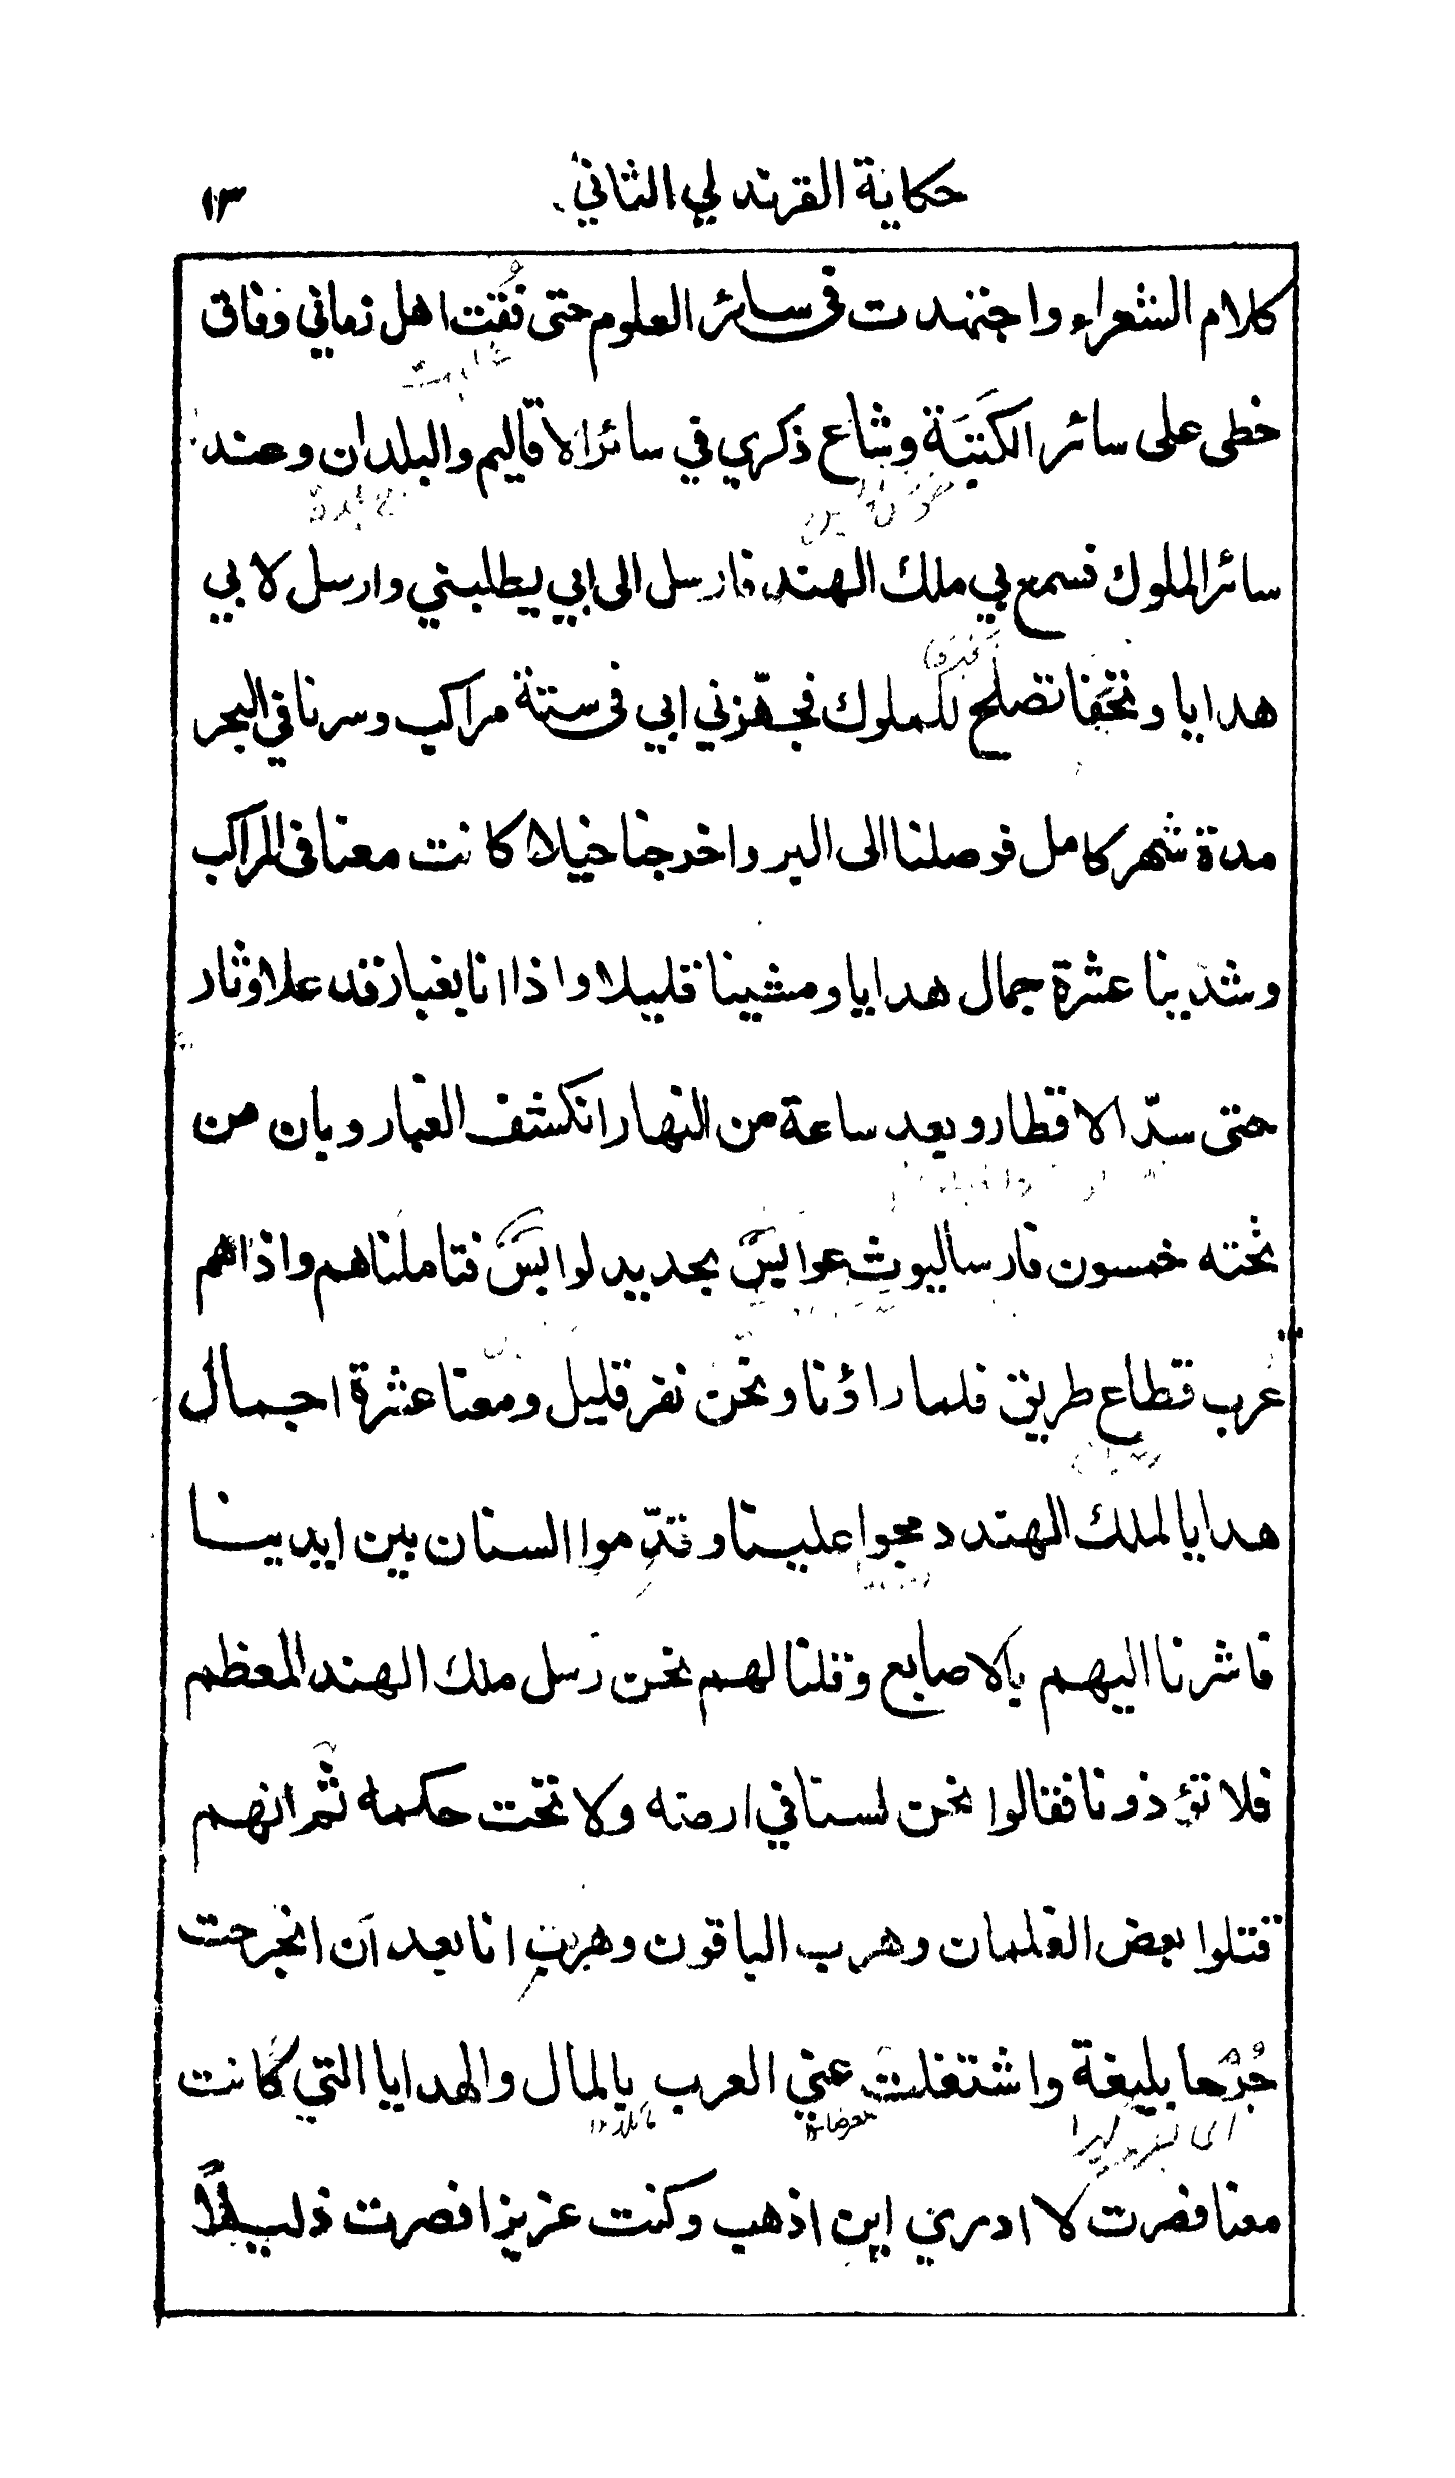 حكاية القرندلي الثاني
١٣
كلام الشعراء واجتهدت في سائر العلوم حتى فُقت اهل زماني وفاق
خطى على سائر الكَتَبَة وشاع ذكري في سائر الاقاليم والبلدان وعند
سائر الملوك فسمع بي ملك الهند فارسل الى ابي يطلبني وارسل لابي
هدايا وتحفا تصلح للملوك فجهّزني ابي في ستة مراكب وسرنا في البحر
مدة شهر كامل فوصلنا الى البر واخرجنا خيلا كانت معنا في المراكب
وشدينا عشرة جمال هدايا ومشينا قليلا واذا انا بغبار قد علا وثار
حتى سدّ الاقطار وبعد ساعة من النهار انكشف الغبار وبان من
تحته خمسون فارسا ليوث عوابس بحديد لوابس فتاملناهم واذاهم
عرب قطاع طريق فلما راؤنا ونحن نفر قليل ومعنا عشرة اجمال
هدايا لملك الهند دمجوا علينا وقدّموا السنان بين ايدينا
فاشرنا اليهم بالاصابع وقلنا لهم نحن رسل ملك الهند المعظم
فلا تؤذونا فقالوا نحن لسنا في ارضه ولا تحت حكمه ثم انهم
قتلوا بعض الغلمان وهرب الباقون وهربت انا بعد ان انجرحت
جُرْحا بليغة واشتغلت عني العرب بالمال والهدايا التي كانت
معنا فصرت لا ادري اين اذهب وكنت عزيزا فصرت ذليلاً